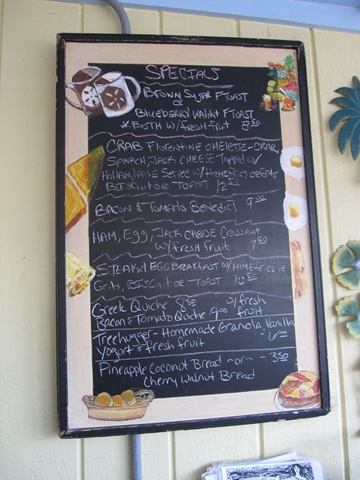 SPECIALS
BROWN SUGAR F TOAST
or
BLUEBERRY WALNUT F TOAST
*BOTH w/ fresh fruit 8.50
CRAB Florentine OMELETTE - CRAB,
SPINACH, JACK CHEESE TOPPED w/
HOLLANDAISE SERVED w/ HOMEFRIES or GRITS
BISCUIT or TOAST 12.
BACON & TOMATO BENEDICT 9.
HAM, EGG, JACK CHEESE CROISSANT
w/ fresh FRUIT 7.50
STEAK N EGG BREAKFAST w/ HOMEFRIES or
Grits, BISCUIT or TOAST 10.50
Greek Quiche 8.50 w/ fresh
Bacon & Tomato Quiche 9.00 fruit
Treehugger - Homemade Granola, Vanilla
Yogurt & fresh fruit - 6.00
Pineapple Coconut Bread - or - - 3.50
Cherry Walnut Bread